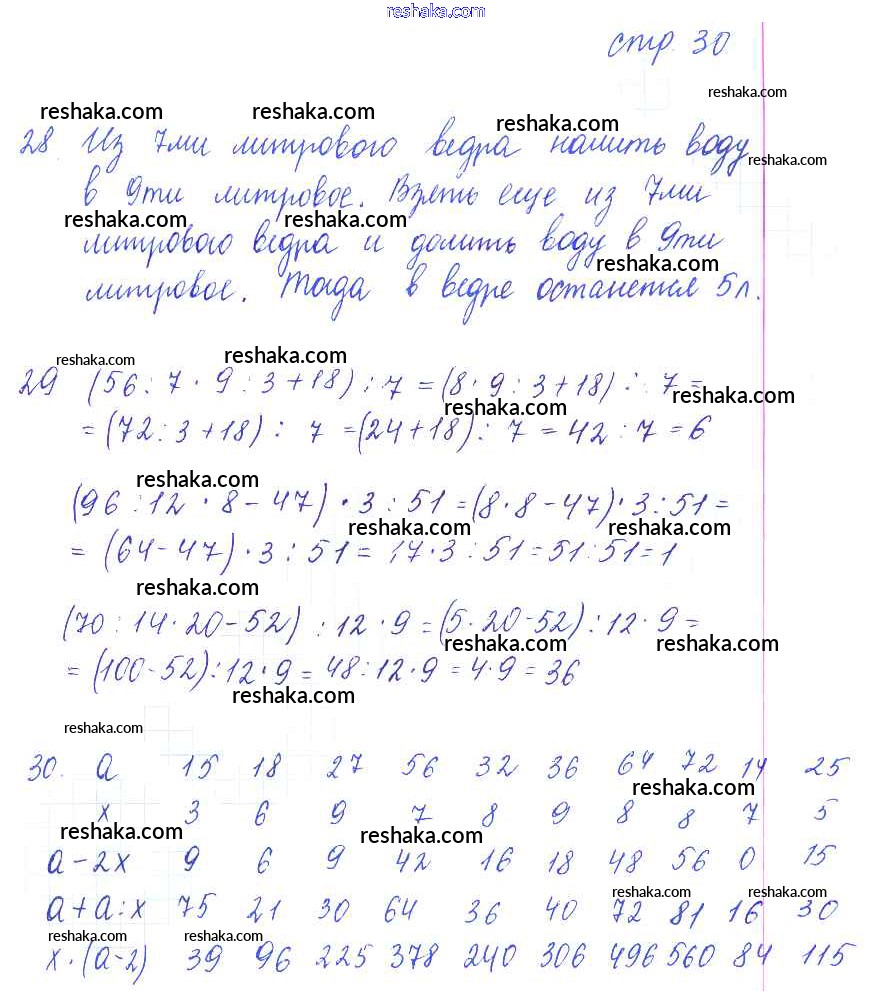 reshaka.com
стр. 30
reshaka.com
reshaka.com reshaka.com reshaka.com
28. Из 7ми литрового ведра налить воду
reshaka.com
в 9ти литровое. Взять еще из 7ми
reshaka.com reshaka.com
литрового ведра и долить воду в 9ти
reshaka.com
литровое. Тогда в ведре останется 5л.
reshaka.com reshaka.com
29 (56 : 7 · 9 : 3 + 18) : 7 = (8 · 9 : 3 + 18) : 7 =
reshaka.com
= (72 : 3 + 18) : 7 = (24 + 18) : 7 = 42 : 7 = 6
reshaka.com
(96 : 12 · 8 - 47) · 3 : 51 = (8 · 8 - 47) · 3 : 51 =
reshaka.com reshaka.com
= (64 - 47) · 3 : 51 = 17 · 3 : 51 = 51 : 51 = 1
reshaka.com
(70 : 14 · 20 - 52) : 12 · 9 = (5 · 20 - 52) : 12 · 9 =
reshaka.com reshaka.com
= (100 - 52) : 12 · 9 = 48 : 12 · 9 = 4 · 9 = 36
reshaka.com
reshaka.com
30. a 15 18 27 56 32 36 64 72 14 25
reshaka.com
x 3 6 9 7 8 9 8 8 7 5
reshaka.com reshaka.com
a - 2x 9 6 9 42 16 18 48 56 0 15
reshaka.com reshaka.com
a + a : x 75 21 30 64 36 40 72 81 16 30
reshaka.com reshaka.com
x · (a - 2) 39 96 225 378 240 306 496 560 84 115